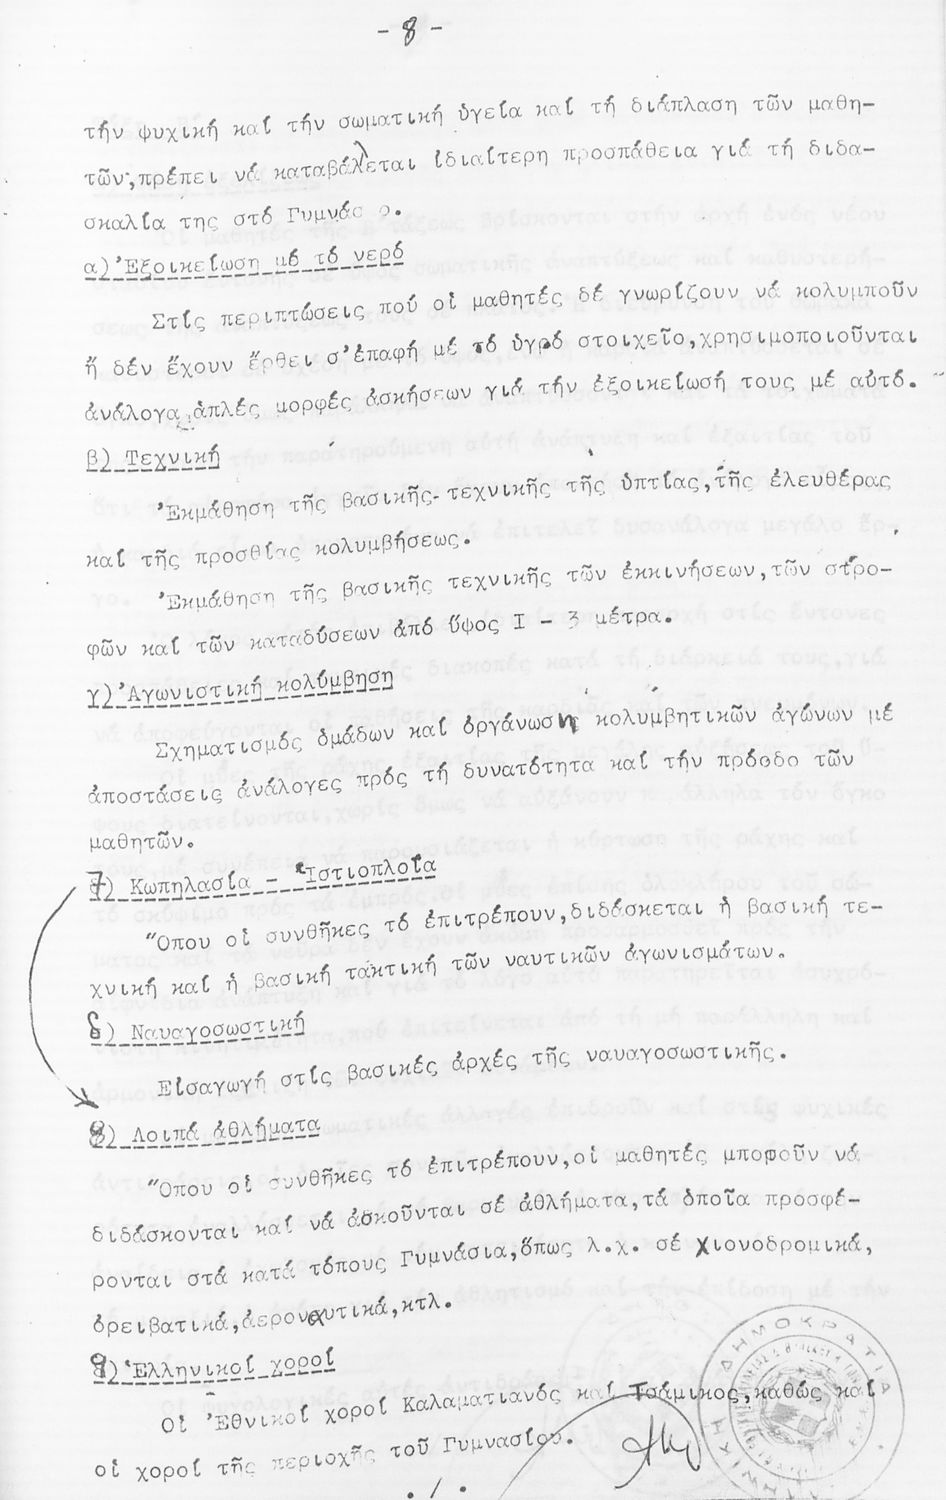 - 8 -
τήν ψυχική καί τήν σωματική ὑγεία καί τή διάπλαση τῶν μαθη-
τῶν,πρέπει νά καταβάλεται ἰδιαίτερη προσπάθεια γιά τή διδα-
σκαλία της στό Γυμνάσιο.
α)Ἐξοικείωση μέ τό νερό
Στίς περιπτώσεις πού οἱ μαθητές δέ γνωρίζουν νά κολυμποῦν
ἤ δέν ἔχουν ἔρθει σ'ἐπαφή μέ τό ὑγρό στοιχεῖο,χρησιμοποιοῦνται
ἀνάλογα ἁπλές μορφές ἀσκήσεων γιά τήν ἐξοικείωσή τους μέ αὐτό.
β) Τεχνική
Ἐκμάθηση τῆς βασικῆς τεχνικῆς τῆς ὑπτίας,τῆς ἐλευθέρας
καί τῆς προσθίας κολυμβήσεως.
Ἐκμάθηση τῆς βασικῆς τεχνικῆς τῶν ἐκκινήσεων,τῶν στρο-
φῶν καί τῶν καταδύσεων ἀπό ὕψος I - 3 μέτρα.
γ)Ἀγωνιστική κολύμβηση
Σχηματισμός ὁμάδων καί ὀργάνωση κολυμβητικῶν ἀγώνων μέ
ἀποστάσεις ἀνάλογες πρός τή δυνατότητα καί τήν πρόοδο τῶν
μαθητῶν.
7) Κωπηλασία - Ἱστιοπλοΐα
Ὅπου οἱ συνθῆκες τό ἐπιτρέπουν,διδάσκεται ἡ βασική τε-
χνική καί ἡ βασική τακτική τῶν ναυτικῶν ἀγωνισμάτων.
δ) Ναυαγοσωστική
Εἰσαγωγή στίς βασικές ἀρχές τῆς ναυαγοσωστικῆς.
8) Λοιπά ἀθλήματα
Ὅπου οἱ συνθῆκες τό ἐπιτρέπουν,οἱ μαθητές μποροῦν νά
διδάσκονται καί νά ἀσκοῦνται σέ ἀθλήματα,τά ὁποῖα προσφέ-
ρονται στά κατά τόπους Γυμνάσια,ὅπως λ.χ. σέ χιονοδρομικά,
ὀρειβατικά,ἀεροναυτικά,κτλ.
9) Ἑλληνικοί χοροί
Οἱ Ἐθνικοί χοροί Καλαματιανός καί Τσάμικος,καθώς καί
οἱ χοροί τῆς περιοχῆς τοῦ Γυμνασίου.
./.
ΕΛΛΗΝΙΚΗ ΔΗΜΟΚΡΑΤΙΑ